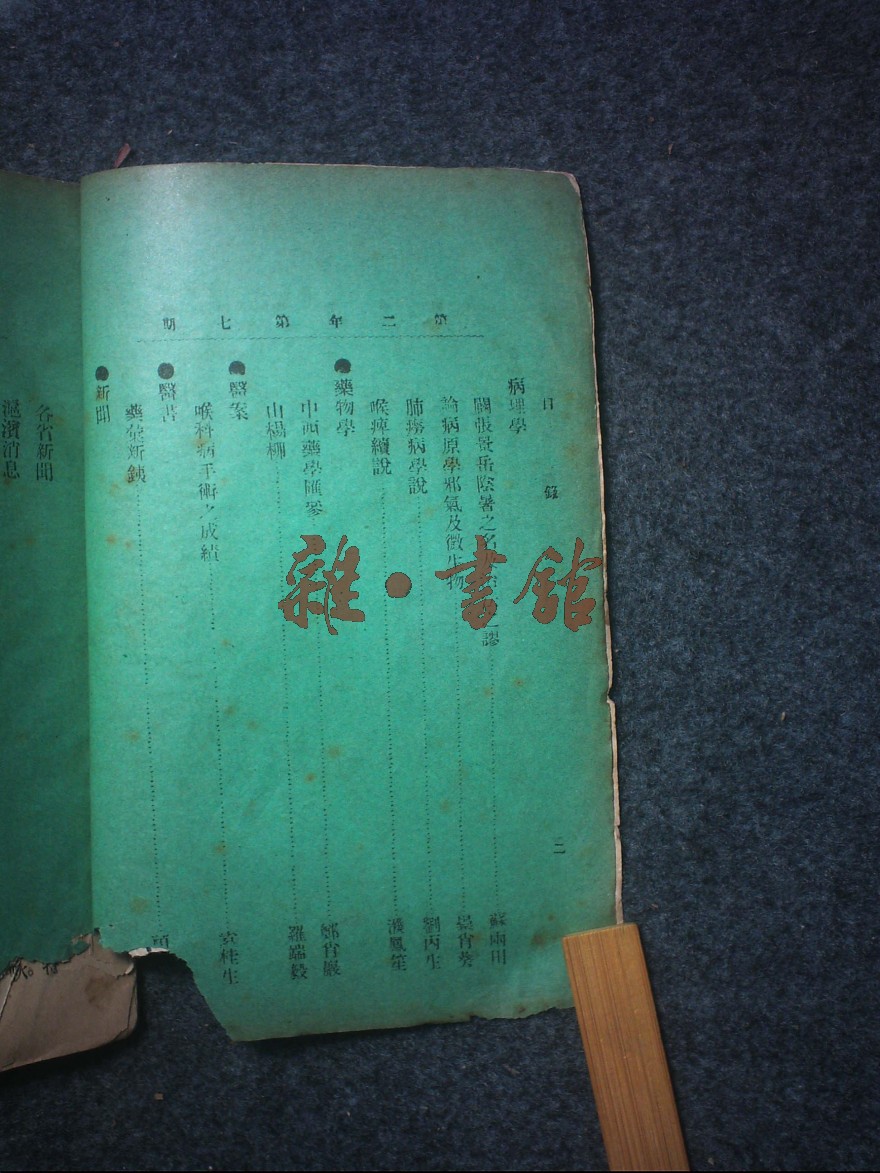 第二年第七期
目錄
二
病理學
闢張景岳陰暑之名 謬 蘇雨田
論病原學邪氣及微生物 宵葵
肺癆病學說 劉丙生
喉痺續說 鳳笙
●藥物學
中西藥學匯參 鄭肖巖
山楊柳 羅端毅
●醫案
喉科病手術之成績 袁桂生
●醫書
藥葊新鈇
●新聞
各省新聞
滬濱消息
雜·書館